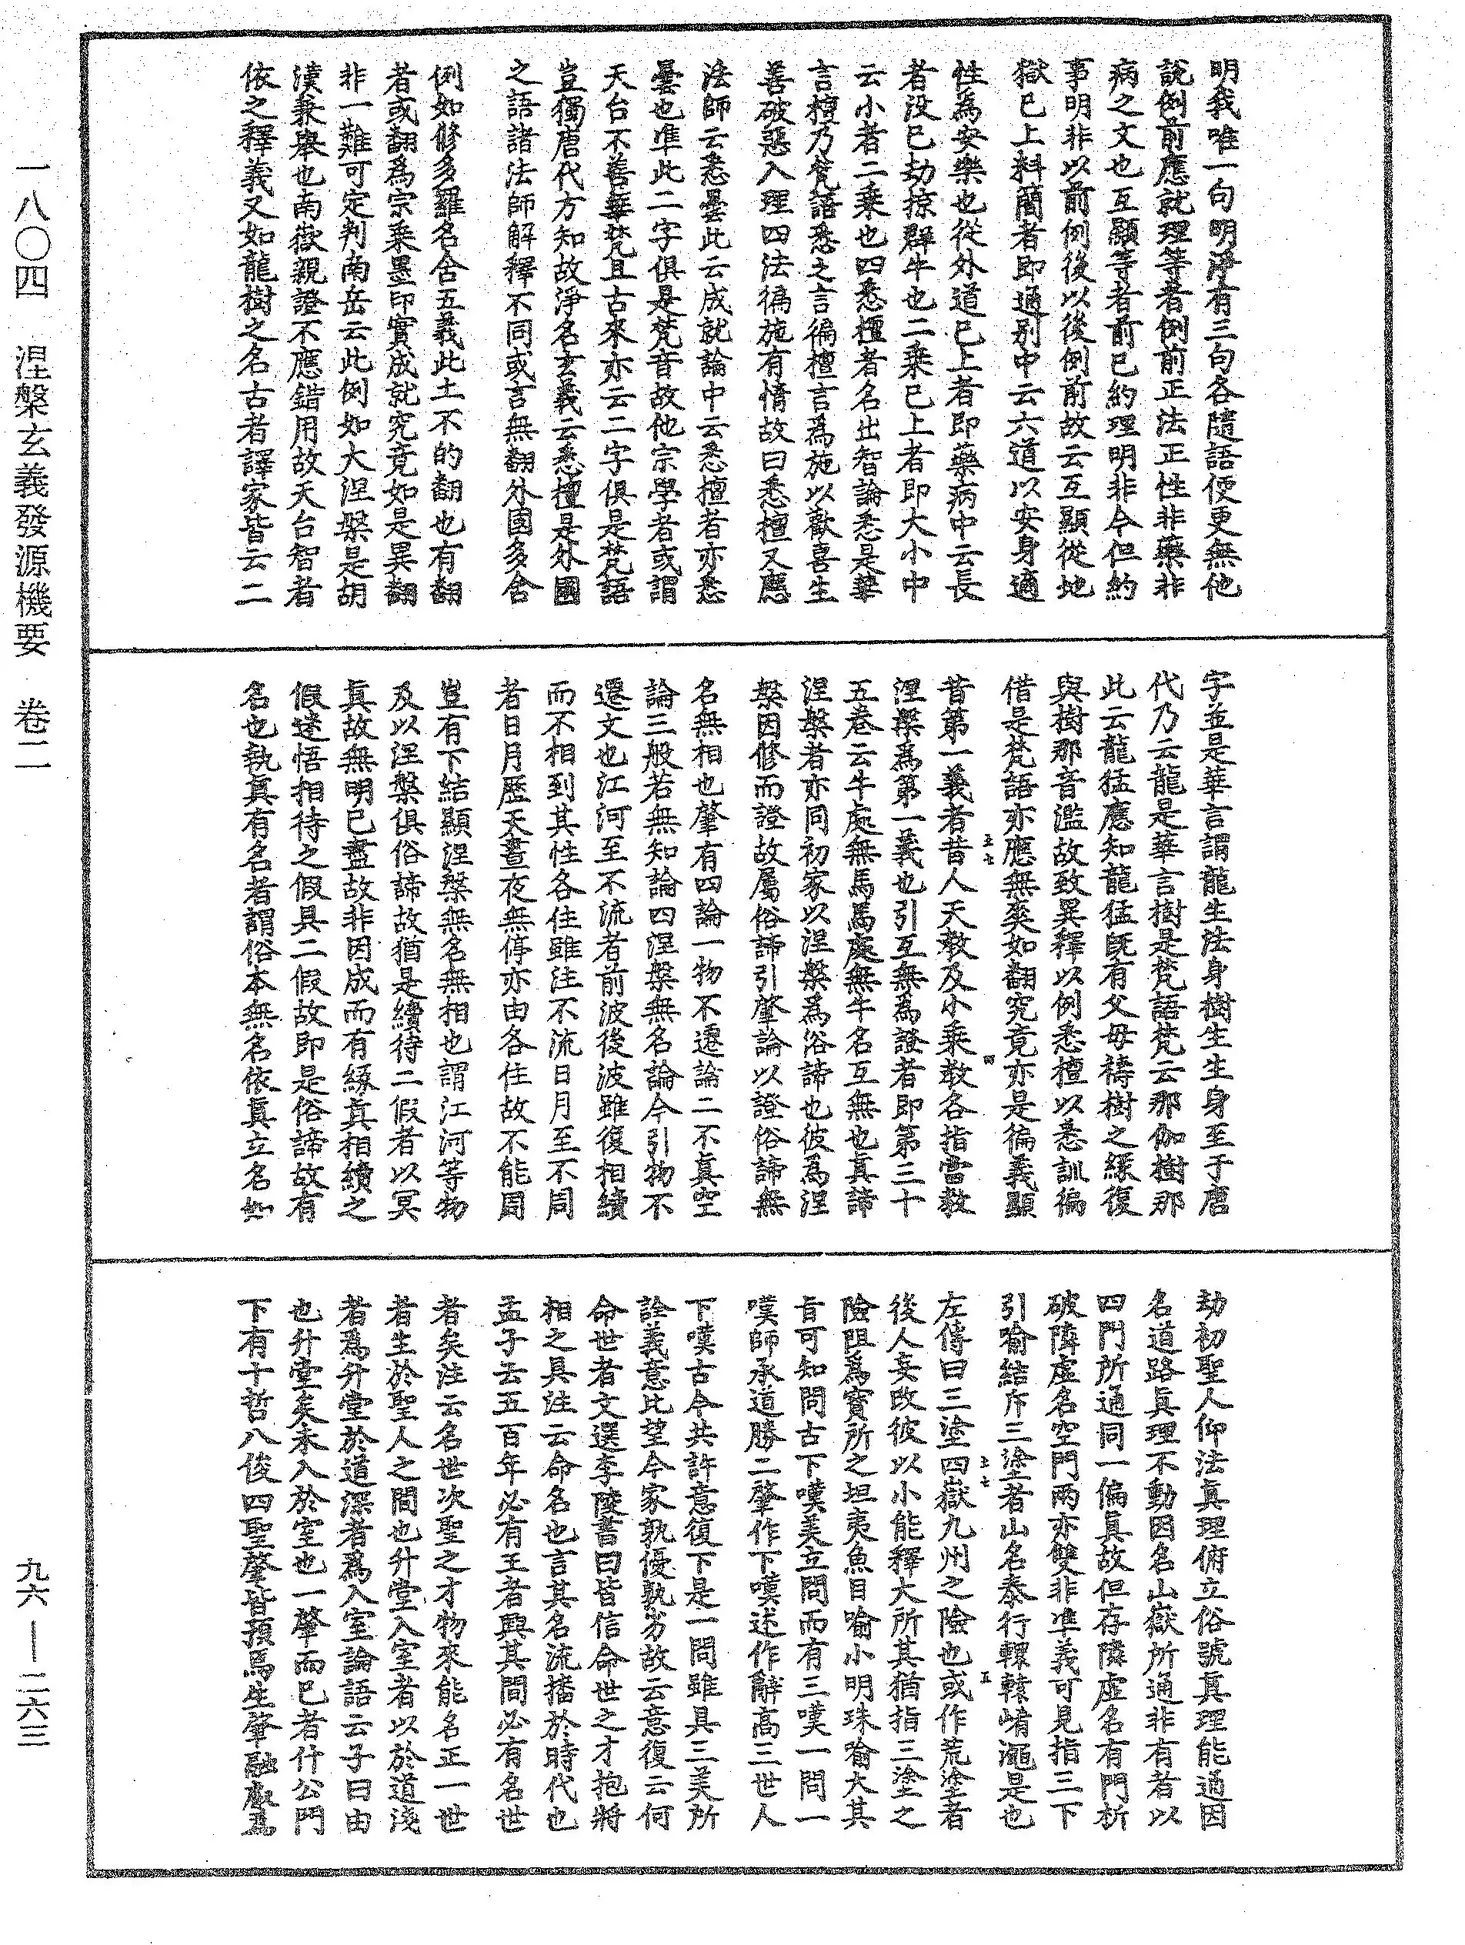 一八〇四　涅槃玄義發源機要　卷二
九六—二六三
明我唯一句明淨有三句各隨語便更無他
說例前應就理等者例前正法正性非藥非
病之文也互顯等者前已約理明非今但約
事明非以前例後以後例前故云互顯從地
獄已上料簡者即通別中云六道以安身適
性為安樂也從外道已上者即藥病中云長
者沒已劫掠群牛也二乘已上者即大小中
云小者二乘也四悉檀者名出智論悉是華
言檀乃梵語悉之言徧檀言為施以歡喜生
善破惡入理四法徧施有情故曰悉檀又應
法師云悉曇此云成就論中云悉檀者亦悉
曇也準此二字俱是梵音故他宗學者或謂
天台不善華梵且古來亦云二字俱是梵語
豈獨唐代方知故淨名玄義云悉檀是外國
之語諸法師解釋不同或言無翻外國多含
例如修多羅名含五義此土不的翻也有翻
者或翻為宗乘墨印實成就究竟如是異翻
非一難可定判南岳云此例如大涅槃是胡
漢兼舉也南嶽親證不應錯用故天台智者
依之釋義又如龍樹之名古者譯家皆云二
字並是華言謂龍生法身樹生生身至于唐
代乃云龍是華言樹是梵語梵云那伽樹那
此云龍猛應知龍猛既有父母禱樹之緣復
與樹那音濫故致異釋以例悉檀以悉訓徧
借是梵語亦應無爽如翻究竟亦是徧義顯
昔第一義者昔人天教及小乘教各指當教
涅槃為第一義也引互無為證者即第三十
五卷云牛處無馬馬處無牛名互無也真諦
涅槃者亦同初家以涅槃為俗諦也彼為涅
槃因修而證故屬俗諦引肇論以證俗諦無
名無相也肇有四論一物不遷論二不真空
論三般若無知論四涅槃無名論今引物不
遷文也江河至不流者前波後波雖復相續
而不相到其性各住雖注不流日月至不周
者日月歷天晝夜無停亦由各住故不能周
豈有下結顯涅槃無名無相也謂江河等物
及以涅槃俱俗諦故猶是續待二假者以冥
真故無明已盡故非因成而有緣真相續之
假迷悟相待之假具二假故即是俗諦故有
名也執真有名者謂俗本無名依真立名如
劫初聖人仰法真理俯立俗號真理能通因
名道路真理不動因名山嶽所通非有者以
四門所通同一偏真故但存隣虛名有門析
破隣虛名空門兩亦雙非準義可見指三下
引喻結斥三塗者山名泰行轘轅崤澠是也
左傳曰三塗四嶽九州之險也或作荒塗者
後人妄改彼以小能釋大所其猶指三塗之
險阻為寶所之坦夷魚目喻小明珠喻大其
旨可知問古下嘆美立問而有三嘆一問一
嘆師承道勝二肇作下嘆述作辭高三世人
下嘆古今共許意復下是一問雖具三美所
詮義意比望今家孰優孰劣故云意復云何
命世者文選李陵書曰皆信命世之才抱將
相之具注云命名也言其名流播於時代也
孟子云五百年必有王者興其間必有名世
者矣注云名世次聖之才物來能名正一世
者生於聖人之間也升堂入室者以於道淺
者為升堂於道深者為入室論語云子曰由
也升堂矣未入於室也一肇而已者什公門
下有十哲八俊四聖肇皆預焉生肇融叡為